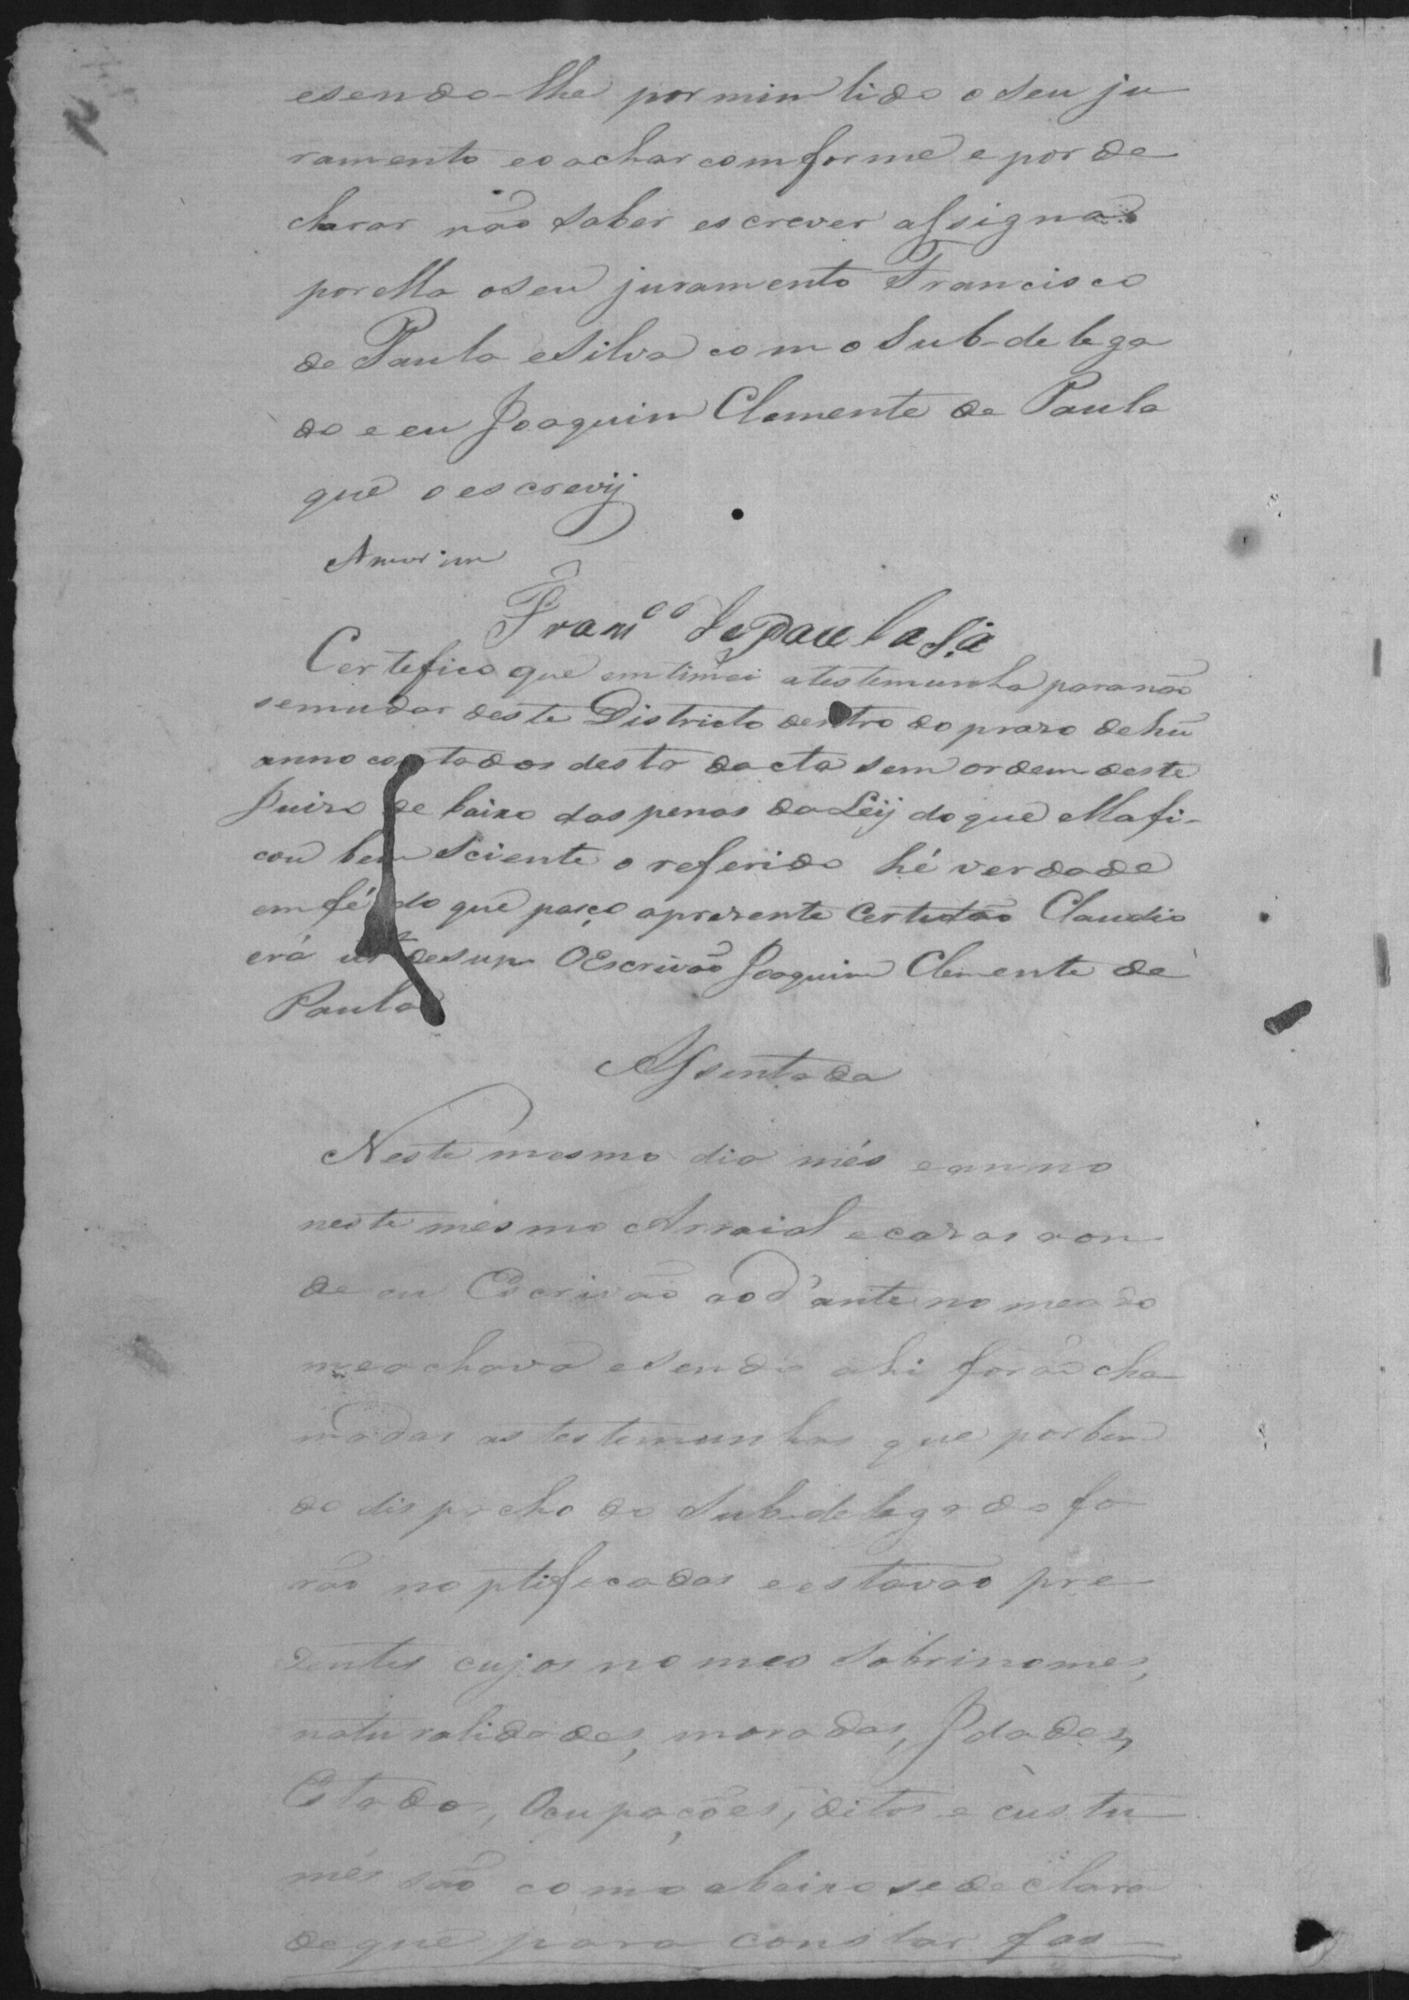 esendo-lhe por mim lido o seu ju
ramento eo achar comforme e por de
clarar não saber escrever assigna
por ella o seu juramento Francisco
de Paula e Silva com o Sub-delega
do e eu Joaquim Clemente de Paula
que o escrevij
Amorim
Fram.co de paula S.a
Certefico que emtimei a testemunha para não
semudar deste Districto dentro do prazo de hũ
anno contados desta dacta sem ordem deste
Juizo de baixo das penas da Leij do que ella fi-
cou bem sciente o referido hé verdade
em fé do que paço aprezente Certidão Claudio
erá ut desup. OEscrivão Joaquim Clemente de
Paula
Assentada
Neste mesmo dia més eanno
neste mesmo Arraial e cazas aon
de eu Escrivão aod'ante nomeado
meachava esendo ahi forão cha
madas as testemunhas que por ben
do dispacho do Sub-delegado fo
rão noptificadas e estavão pre
zentes cujos nomes Sobrinomes,
naturalidades, moradas, Jdades,
Estados, Ocupações, ditos e custu
més são como abaixo se declara
de que para constar fas